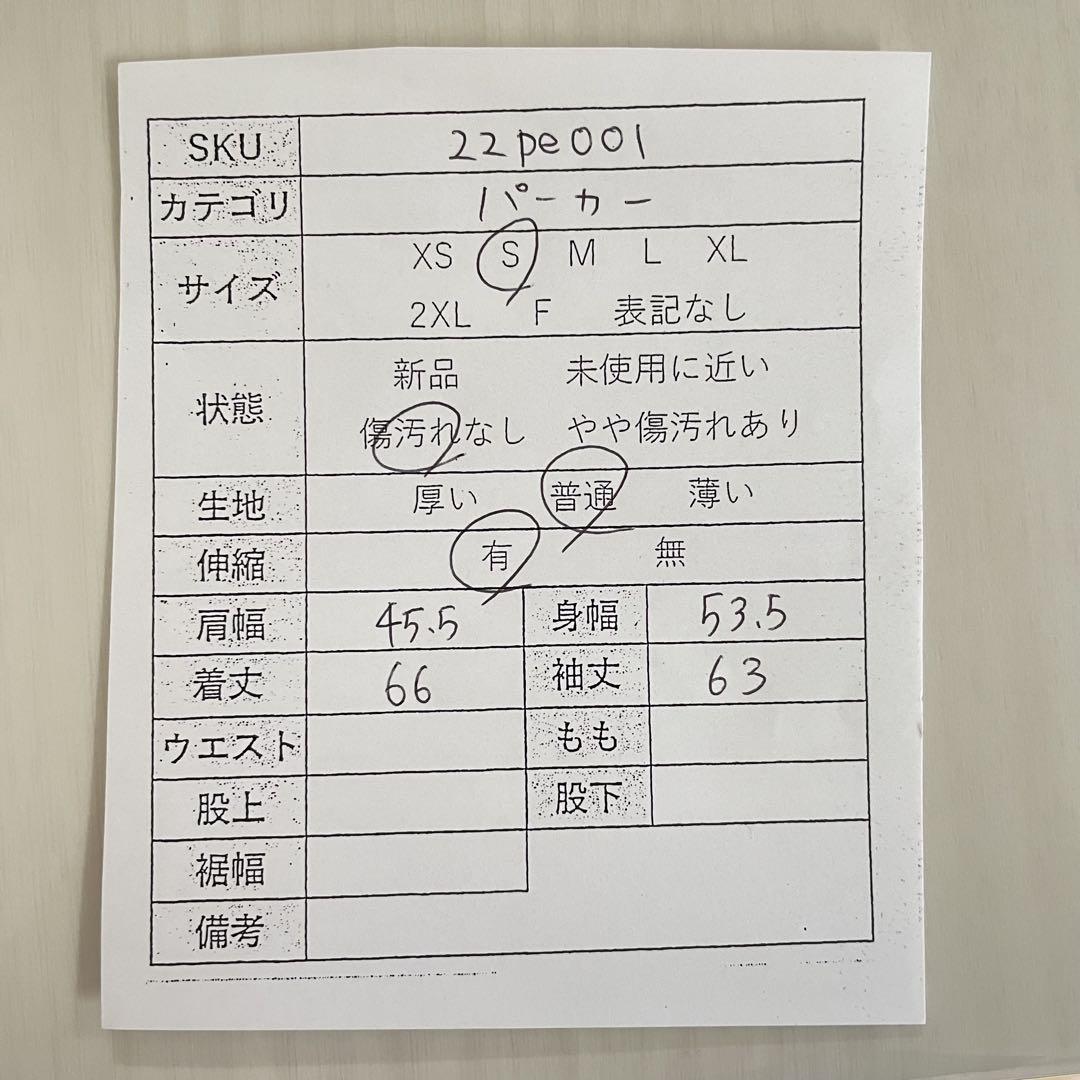 SKU 22pe001
カテゴリ パーカー
サイズ XS S M L XL
2XL F 表記なし
状態 新品 未使用に近い
傷汚れなし やや傷汚れあり
生地 厚い 普通 薄い
伸縮 有 無
肩幅 45.5 身幅 53.5
着丈 66 袖丈 63
ウエスト もも
股上 股下
裾幅
備考